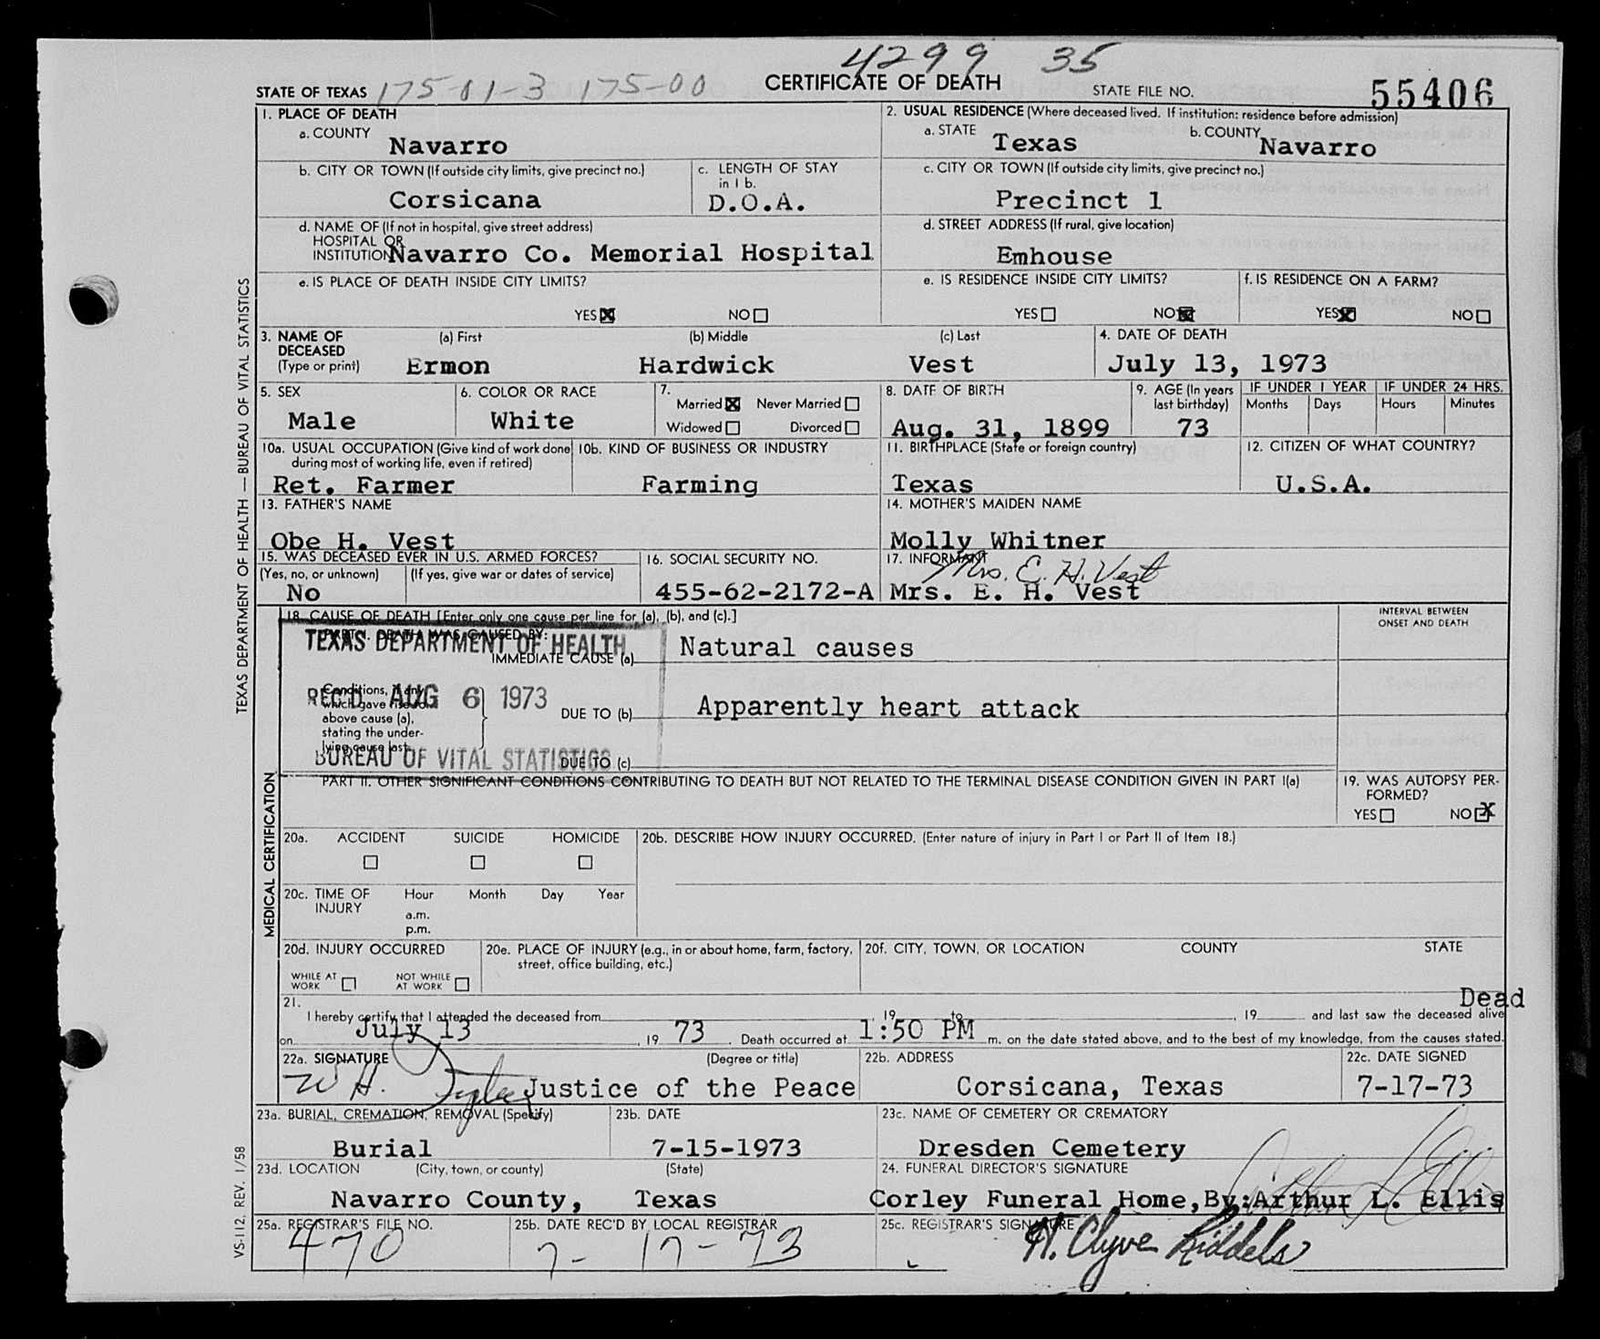 4299 35
STATE OF TEXAS 175-01-3 175-00 CERTIFICATE OF DEATH STATE FILE NO. 55406
1. PLACE OF DEATH
a. COUNTY
Navarro
2. USUAL RESIDENCE (Where deceased lived. If institution: residence before admission)
a. STATE Texas b. COUNTY Navarro
b. CITY OR TOWN (If outside city limits, give precinct no.)
Corsicana
c. LENGTH OF STAY
in 1 b.
D.O.A.
c. CITY OR TOWN (If outside city limits, give precinct no.)
Precinct 1
d. NAME OF (If not in hospital, give street address)
HOSPITAL OR
INSTITUTION Navarro Co. Memorial Hospital
d. STREET ADDRESS (If rural, give location)
Emhouse
e. IS PLACE OF DEATH INSIDE CITY LIMITS?
YES☒ NO☐
e. IS RESIDENCE INSIDE CITY LIMITS?
YES☐ NO☒
f. IS RESIDENCE ON A FARM?
YES☒ NO☐
3. NAME OF (a) First (b) Middle (c) Last
DECEASED
(Type or print) Ermon Hardwick Vest
4. DATE OF DEATH
July 13, 1973
5. SEX
Male
6. COLOR OR RACE
White
7.
Married☒ Never Married☐
Widowed☐ Divorced☐
8. DATE OF BIRTH
Aug. 31, 1899
9. AGE (In years
last birthday)
73
IF UNDER 1 YEAR
Months Days
IF UNDER 24 HRS.
Hours Minutes
10a. USUAL OCCUPATION (Give kind of work done
during most of working life, even if retired)
Ret. Farmer
10b. KIND OF BUSINESS OR INDUSTRY
Farming
11. BIRTHPLACE (State or foreign country)
Texas
12. CITIZEN OF WHAT COUNTRY?
U.S.A.
13. FATHER'S NAME
Obe H. Vest
14. MOTHER'S MAIDEN NAME
Molly Whitner
15. WAS DECEASED EVER IN U.S. ARMED FORCES?
(Yes, no, or unknown) (If yes, give war or dates of service)
No
16. SOCIAL SECURITY NO.
455-62-2172-A
17. INFORMANT
Mrs. E. H. Vest
Mrs. E. H. Vest
18. CAUSE OF DEATH [Enter only one cause per line for (a), (b), and (c).]
PART I. DEATH WAS CAUSED BY:
INTERVAL BETWEEN
ONSET AND DEATH
TEXAS DEPARTMENT OF HEALTH
IMMEDIATE CAUSE (a) Natural causes
REC'D AUG 6 1973
Conditions, if any,
which gave rise to
above cause (a),
stating the under-
lying cause last.
DUE TO (b) Apparently heart attack
BUREAU OF VITAL STATISTICS
DUE TO (c)
PART II. OTHER SIGNIFICANT CONDITIONS CONTRIBUTING TO DEATH BUT NOT RELATED TO THE TERMINAL DISEASE CONDITION GIVEN IN PART I(a)
19. WAS AUTOPSY PER-
FORMED?
YES☐ NO☒
20a. ACCIDENT SUICIDE HOMICIDE
☐ ☐ ☐
20b. DESCRIBE HOW INJURY OCCURRED. (Enter nature of injury in Part I or Part II of Item 18.)
20c. TIME OF Hour Month Day Year
INJURY a.m.
p.m.
20d. INJURY OCCURRED
WHILE AT WORK ☐ NOT WHILE AT WORK ☐
20e. PLACE OF INJURY (e.g., in or about home, farm, factory,
street, office building, etc.)
20f. CITY, TOWN, OR LOCATION COUNTY STATE
21. Dead
I hereby certify that I attended the deceased from , 19 to , 19 and last saw the deceased alive
on July 13 , 19 73 . Death occurred at 1:50 PM m. on the date stated above, and to the best of my knowledge, from the causes stated.
22a. SIGNATURE (Degree or title)
W H. Justice of the Peace
22b. ADDRESS
Corsicana, Texas
22c. DATE SIGNED
7-17-73
23a. BURIAL, CREMATION, REMOVAL (Specify)
Burial
23b. DATE
7-15-1973
23c. NAME OF CEMETERY OR CREMATORY
Dresden Cemetery
23d. LOCATION (City, town, or county) (State)
Navarro County, Texas
24. FUNERAL DIRECTOR'S SIGNATURE
Corley Funeral Home, By: Arthur L. Ellis
25a. REGISTRAR'S FILE NO.
470
25b. DATE REC'D BY LOCAL REGISTRAR
7-17-73
25c. REGISTRAR'S SIGNATURE
H. Clyve Riddels
TEXAS DEPARTMENT OF HEALTH — BUREAU OF VITAL STATISTICS
MEDICAL CERTIFICATION
VS-112, REV. 1/58